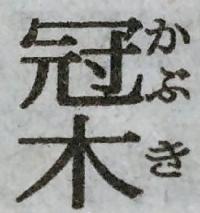 冠木
かぶき